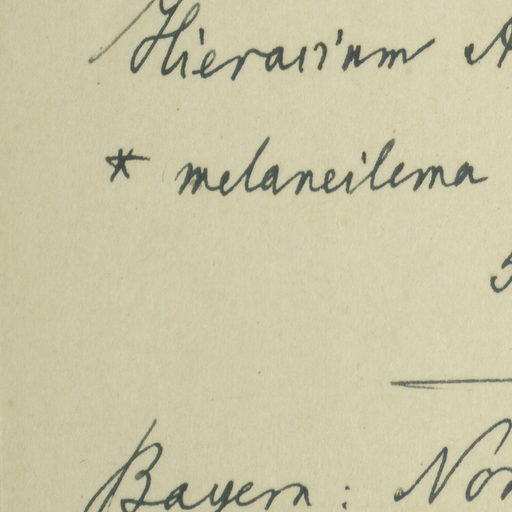 Hieracium
* melaneilema
Bayern :